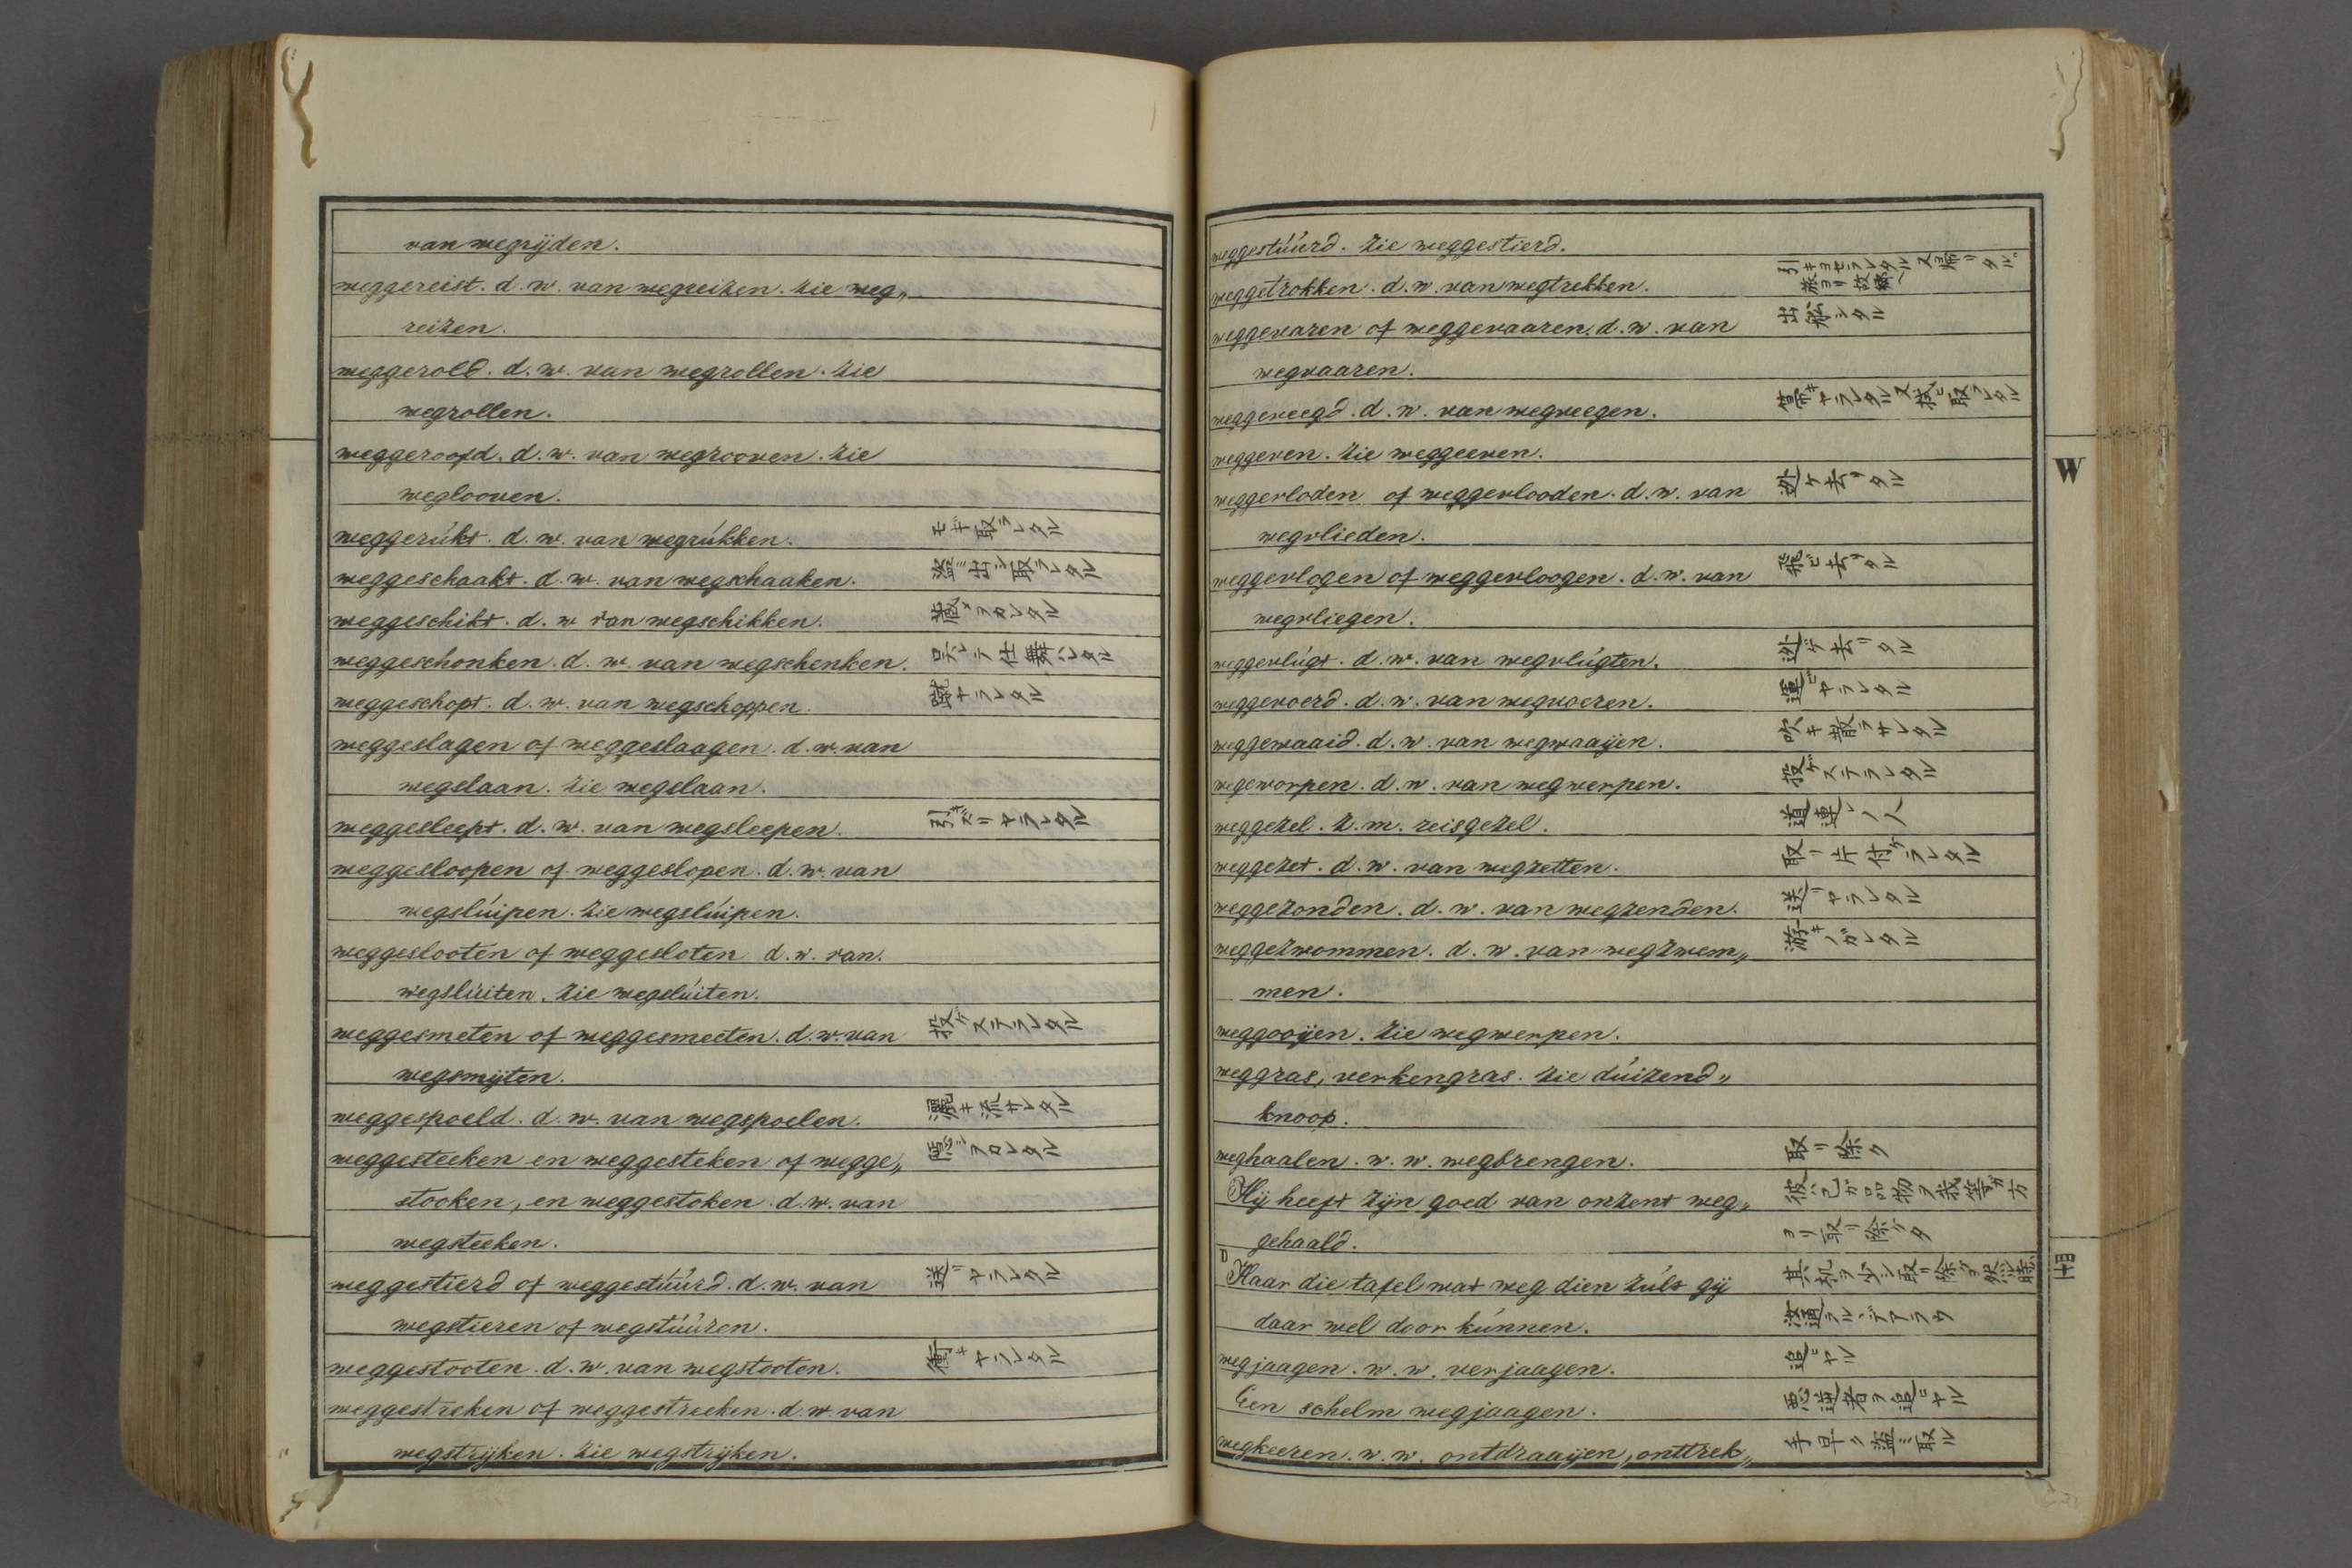 van wegrijden.
weggereist. d. w. van wegreizen. zie weg„
reizen.
weggerold. d. w. van wegrollen. zie
wegrollen.
weggeroofd. d. w. van wegrooven. zie
weglooven.
weggerúkt. d. w. van wegrúkken. モギ取ラレタル
weggeschaakt. d. w. van wegschaaken. 盗ミ出シ取ラレタル
weggeschikt. d. w van wegschikken. 蔵メヲカレタル
weggeschonken. d. w. van wegschenken. 呉レテ仕舞ハレタル
weggeschopt. d. w. van wegschoppen. 蹴ヤラレタル
weggeslagen of weggeslaagen. d. w. van
wegslaan. zie wegslaan.
weggesleept. d. w. van wegsleepen. 引キズリヤラレタル
weggesloopen of weggeslopen. d. w. van
wegslúipen. zie wegslúipen.
weggeslooten of weggesloten d. w. van.
wegslúiten. zie wegslúiten.
weggesmeten of weggesmeeten. d. w. van 投ゲステラレタル
wegsmijten.
weggespoeld. d. w. van wegspoelen. 流サレタル
weggesteeken en weggesteken of wegge„ 隠シヲロレタル
stooken, en weggestoken. d. w. van
wegsteeken.
weggestierd of weggestúúrd. d. w. van 送リヤラレタル
wegstieren of wegstúúren.
weggestooten. d. w. van wegstooten. 衝キヤラレタル
weggestreken of weggestreeken. d. w. van
wegstrijken. zie wegstrijken.
weggestúúrd. zie weggestierd.
weggetrokken. d. w. van wegtrekken. 引キヨセラレタル又帰リタル 旅ヨリ故郷ヘ
weggevaren of weggevaaren. d. w. van 出船シタル
wegvaaren.
weggeveegd. d. w. van wegveegen. 箒キヤラレタル又拭ヒ取ラレタル
weggeven. zie weggeeven.
weggevloden of weggevlooden. d. w. van 迯ケ去リタル
wegvlieden.
weggevlogen of weggevloogen. d. w. van 飛ビ去リタル
wegvliegen.
weggevlúgt. d. w. van wegvlúgten. 迯ゲ去リタル
weggevoerd. d. w. van wegvoeren. 運ビヤラレタル
weggewaaid. d. w. van wegwaaijen. 吹キ散ラサレタル
wegeworpen. d. w. van wegwerpen. 投ゲステラレタル
weggezel. z. m. reisgezel. 道連レノ人
weggezet. d. w. van wegzetten. 取リ片付ケラレタル
weggezonden. d. w. van wegzenden. 送リヤラレタル
weggezwommen. d. w. van wegzwem„ 游キノガレタル
men.
weggooijen. zie wegwerpen.
weggras, verkengras. zie dúizend„
knoop.
weghaalen. w. w. wegbrengen. 取リ除ク
Hij heeft zijn goed van onzent weg„ 彼ハ己ガ品物ヲ我等ガ方
gehaald. ヨリ取リ除ケタ
D Haar die tafel wat weg dien zúlt gij 其机ヲ少シ取リ除ケヨ然ル時
daar wel door kúnnen. 汝通ラルヽデアラウ
wegjaagen. w. w. verjaagen. 追ヒヤル
Een schelm wegjaagen. 悪逆者ヲ追ヒヤル
wegkeeren. w. w. ontdraaijen, onttrek„ 手早ク盗ミ取ル
W